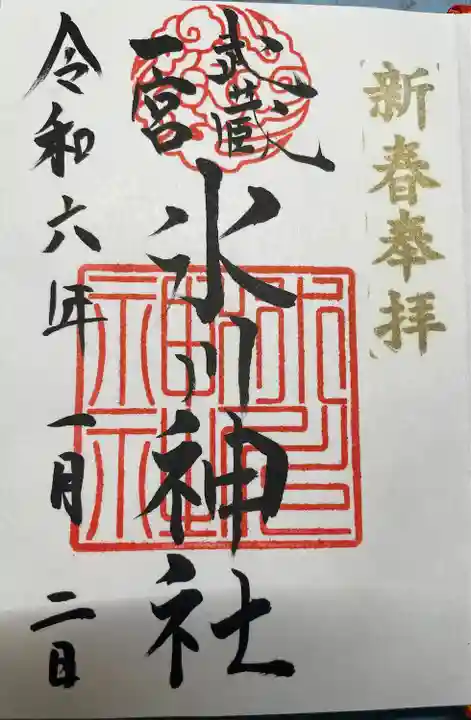 新春奉拝
武蔵
一宮
氷川神社
氷川
神社
令和六年一月二日